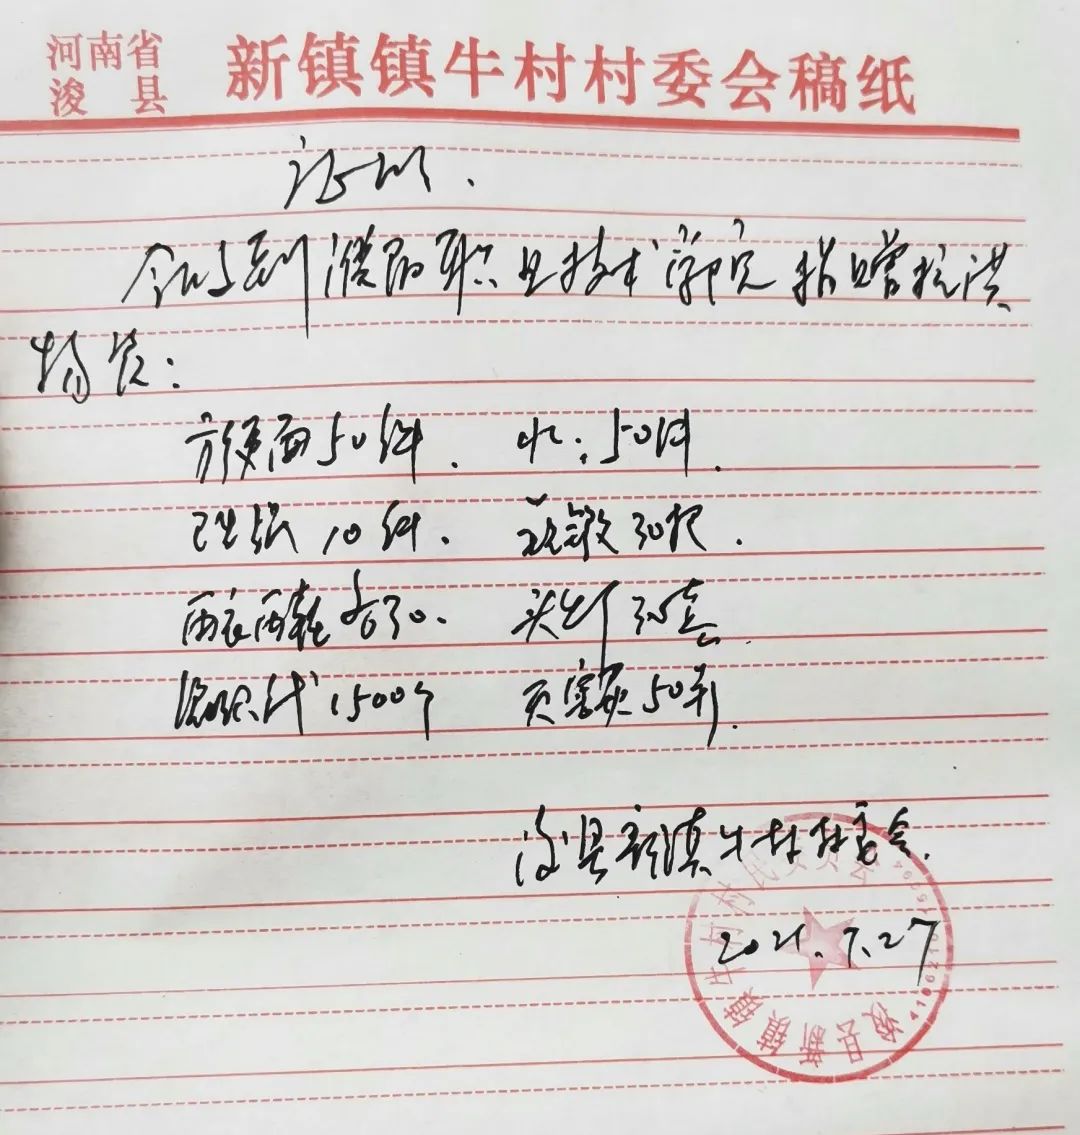 河南省
浚县
新镇镇牛村村委会稿纸
证明.
今收到濮阳职业技术学院捐赠抗洪
物资:
方便面50件. 水:50件.
卫生纸10件. 铁锨30把.
雨衣雨鞋各30. 头灯30套.
编织袋1500个 灭害灵50瓶.
浚县新镇牛村村委会.
2021.7.27
浚县新镇镇牛村村民委员会